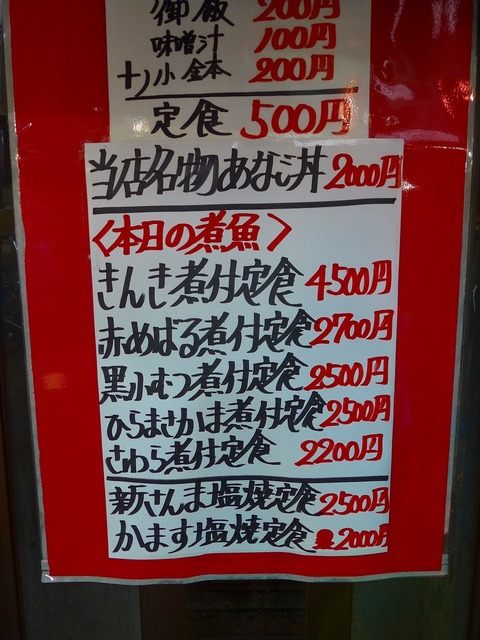 御飯 200円
味噌汁 100円
小 200円
定食 500円
当店名物 あなご丼 2000円
〈本日の煮魚〉
きんき煮付定食 4500円
赤めばる煮付定食 2700円
黒小むつ煮付定食 2500円
ひらまさかま煮付定食 2500円
さわら煮付定食 2200円
新さんま塩焼定食 2500円
かます塩焼定食 2000円